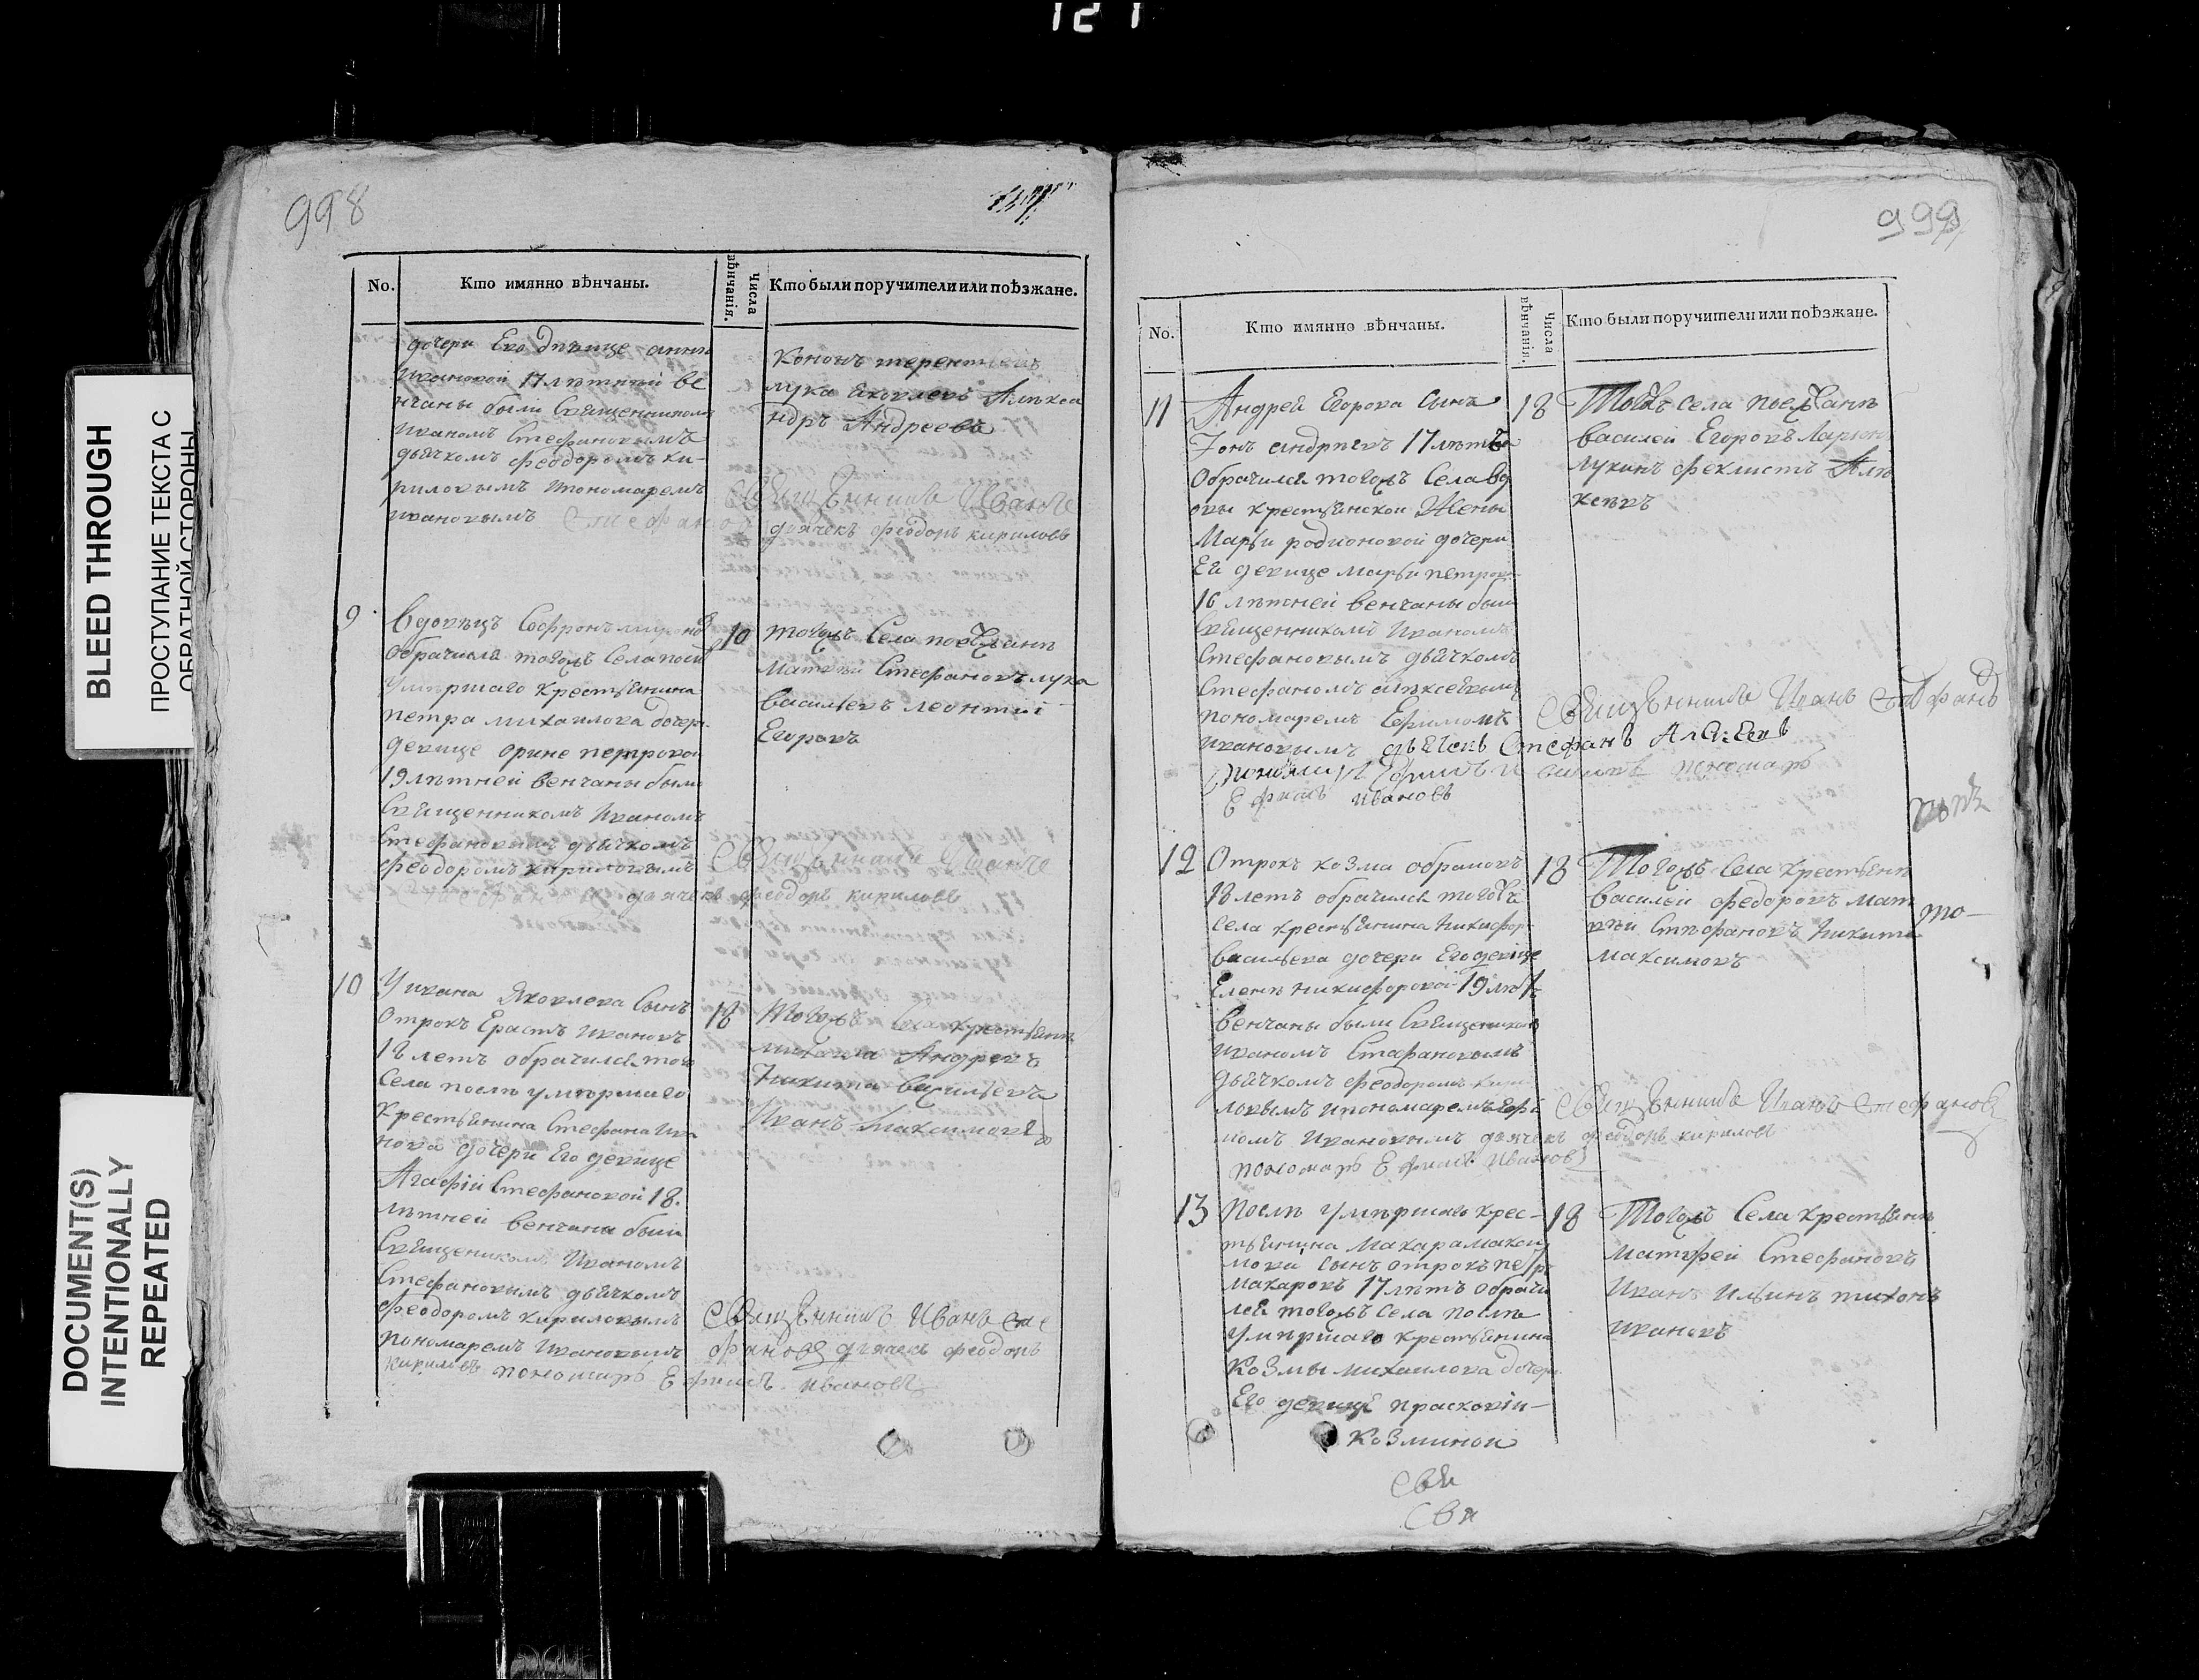 121
BLEED THROUGH
ПРОСТУПАНИЕ ТЕКСТА С
ОБРАТНОЙ СТОРОНЫ
DOCUMENT(S)
INTENTIONALLY
REPEATED
998
No.
Кто имянно вѣнчаны.
Числа вѣнчанія.
Кто были поручители или поѣзжане.
дочери Его дѣвице анны
Ивановой 17 лѣтней ве
нчаны были Священникомъ
Иваномъ Стефановымъ
дьячкомъ Феодоромъ Ки-
риловымъ пономаремъ
Ивановымъ
Кононъ терентьевъ
лука Яковлевъ Алѣкса
ндръ Андреевъ
свящѣнникъ Иванъ Сте
фановъ
дьячекъ феодоръ кириловъ
9
Вдовецъ Софронъ миронов
обрачился тогожъ Села послѣ
умѣршаго крестьянина
петра михаилова дочери
девице орине петровой
19 лѣтней венчаны были
Священникомъ Иваномъ
Стефановымъ дьячкомъ
феодоромъ кириловымъ
10
тогожъ Села поезжанѣ
матвѣй Стефановъ лука
васильевъ леонтий
Егоровъ
свящѣнникъ Иванъ
Стефановъ дьячекъ феодоръ кириловъ
10
У ивана Яковлева Сынъ
Отрокъ Ерастъ ивановъ
18 летъ обрачился того
Села послѣ умѣршаго
крестьянина Стефана Ива
нова дочери Его девице
Агафіи Стефановой 18.
лѣтней венчаны были
Священикомъ Иваномъ
Стефановымъ дьячкомъ
феодоромъ кириловымъ
пономаремъ Ивановымъ
18
Тогожъ Села крестьянѣ
михаила Андреевъ
Никита васильевъ
Иванъ Максимовъ
свящѣнникъ Иванъ Сте
фановъ дьячекъ феодоръ
кириловъ пономарь Ефимъ ивановъ
999
No.
Кто имянно вѣнчаны.
Числа вѣнчанія.
Кто были поручители или поѣзжане.
11
Андрея Егорова Сынъ
Іонъ андрѣевъ 17 лѣтъ
Обрачился тогожъ Села вд
овы крестьянской Жены
Марьи родионовой дочери
Ея девице марьи петров
16 лѣтней венчаны были
Священникомъ Иваномъ
Стефановымъ дьячкомъ
Стефаномъ алѣксеевымъ
пономаремъ Ефимомъ
ивановымъ
18
Тогожъ села поезжанѣ
василей Егоровъ Ларион
лукинъ феклистъ Алѣ
ксѣевъ
свящѣнникъ Иванъ Стефановъ
дьячекъ Стефанъ
пономарь
Ефимъ ивановъ
12
Отрокъ козма абрамовъ
18 летъ обрачился тогожъ
села крестьянина Никифор
васильева дочери Его девице
Еленѣ никифоровой 19 лѣтъ
венчаны были Священиком
иваномъ Стефановымъ
дьячкомъ феодоромъ кири
ловымъ ипономаремъ Ефи
момъ Ивановымъ
18
Тогожъ Села крестьянѣ
василей федоровъ мат
вѣй Стефановъ Никита
максимовъ
то-
свящѣнникъ Иванъ Стефановъ
дьячекъ феодоръ кириловъ
пономарь Ефимъ Ивановъ
13
послѣ умѣршаго крес-
тьянина Макара макси
мова сынъ отрокъ петръ
макаровъ 17 лѣтъ обрачи
лся тогожъ села послѣ
умѣршаго крестьянина
козмы михаилова дочери
Его девице прасковіи
козминой
18
Тогожъ Села крестьянѣ
матфей Стефановъ
Иванъ Ильинъ тихонъ
ивановъ
свя
свя